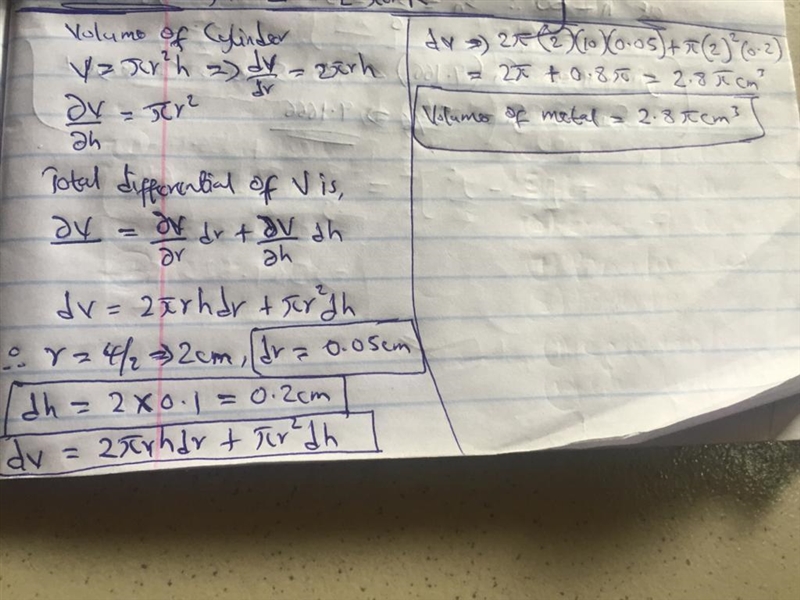 Volume of Cylinder
V = πr²h => dV/dr = 2πrh
∂V/∂h = πr²
Total differential of V is,
∂V = ∂V/∂r dr + ∂V/∂h dh
dv = 2πrhdr + πr²dh
∴ r = 4/2 => 2cm, dr = 0.05cm
dh = 2 × 0.1 = 0.2cm
dv = 2πrhdr + πr²dh
dv => 2π(2)(10)(0.05) + π(2)²(0.2)
= 2π + 0.8π = 2.8πcm³
Volume of metal = 2.8πcm³